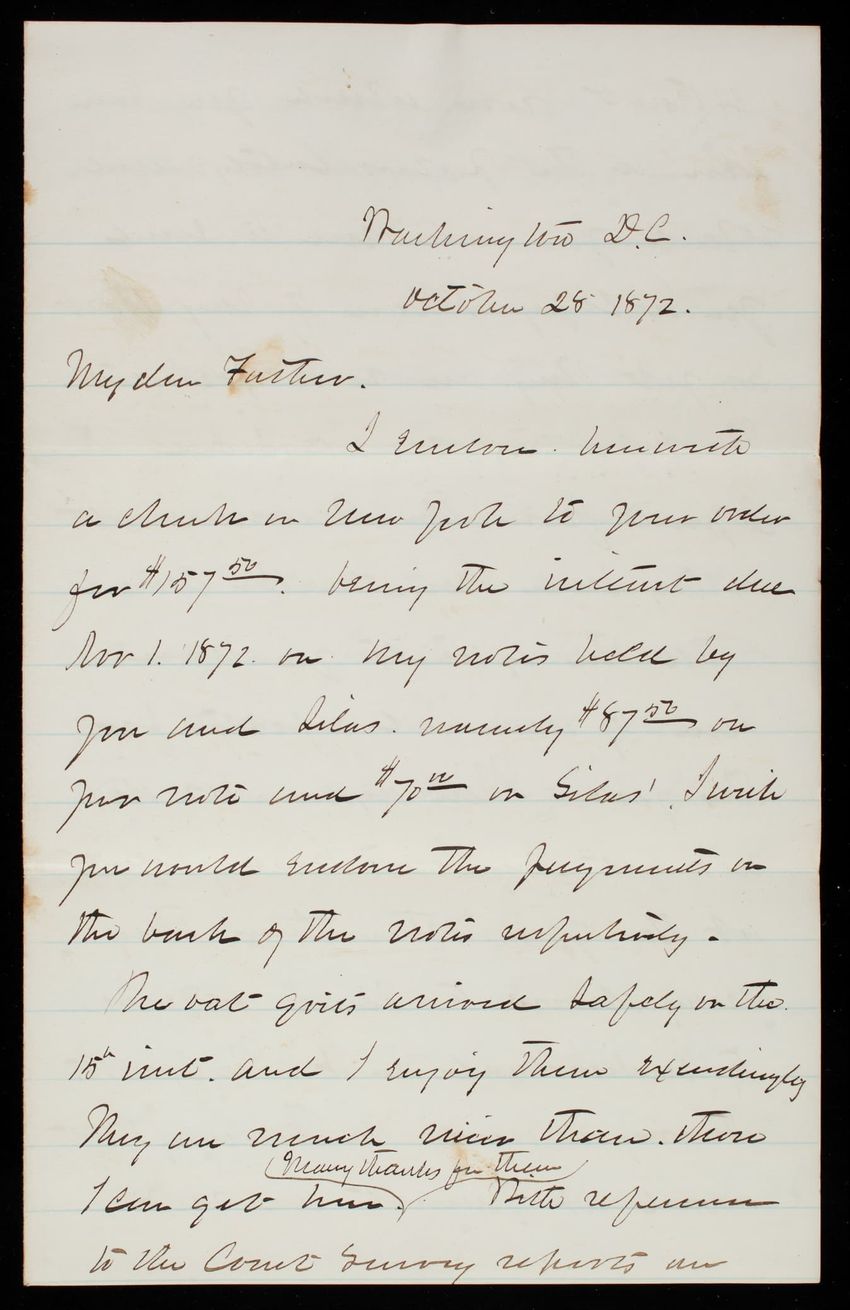 Washington D.C.
October 28 1872.
My dear Father.
I enclose herewith
a check on New York to your order
for $157 50. being the interest due
Nov 1. 1872. on my notes held by
you and Silas. namely $87 50 on
your note and $70 00 on Silas'. I wish
you would endorse the payments on
the back of the notes respectively.
The oat grits arrived safely on the
15th inst. and I enjoy them exceedingly
They are much nicer than those
(Many thanks for them)
I can get here. With reference
to the Coast Survey reports on